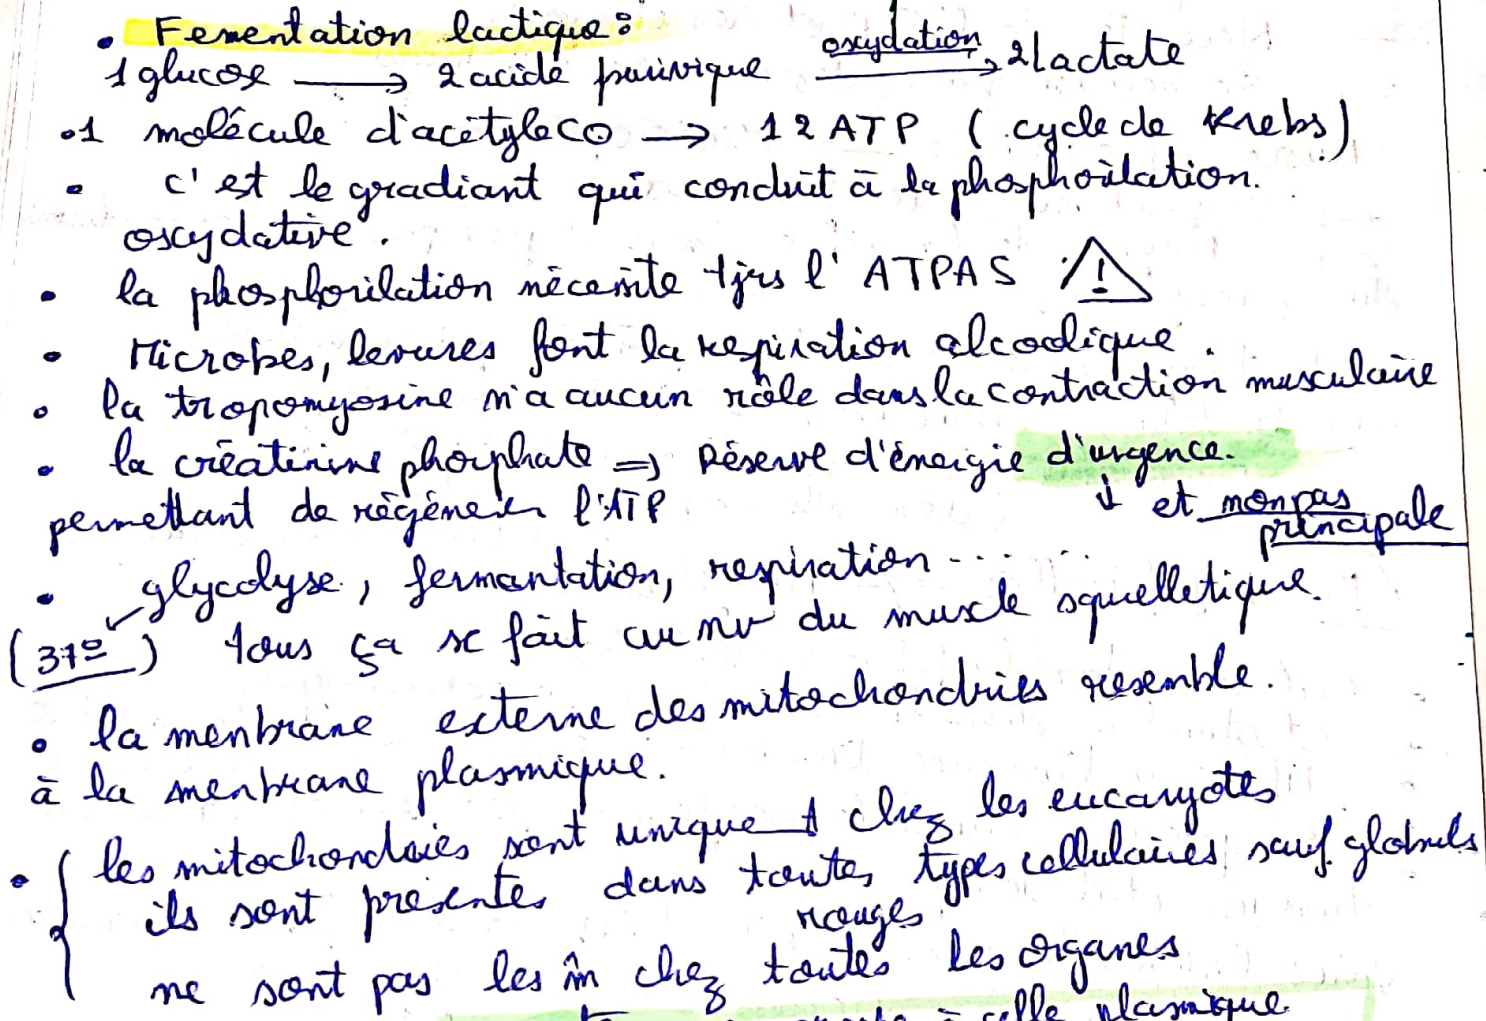 • Fementation lactique:
1 glucose → 2 acide pruivique oxydation → 2 lactate
• 1 molécule d'acétyle CO → 12 ATP ( cycle de Krebs )
• c'est le gradiant qui conduit à la phosphorilation.
oxydative.
• la phosphorilation nécessite tjrs l'ATPAS ⚠
• Microbes, levures font la respiration alcoolique.
• la tropomyosine n'a aucun rôle dans la contraction musculaire
• la créatinine phosphate ⇒ Réserve d'énergie d'urgence.
↓ et non pas
permettant de régénérer l'ATP principale
• glycolyse, fermantation, respiration ......
(37°) tous ça se fait au nv du muscle squelletique.
• la menbrane externe des mitochondries resemble.
à la menbrane plasmique.
• les mitochondries sont unique t chez les eucaryotes
ils sont présentes dans toutes types cellulaires sauf globuls
rouges
ne sont pas les m̂ chez toutes les organes
à celle plasmique.